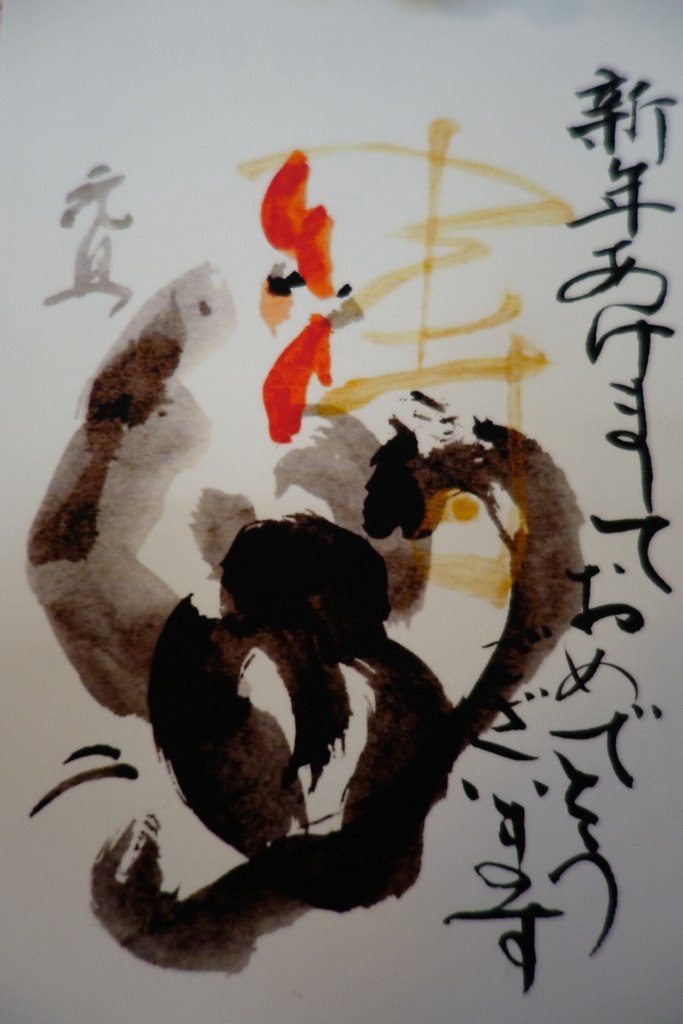 新年あけましておめでとう
ございます
元旦